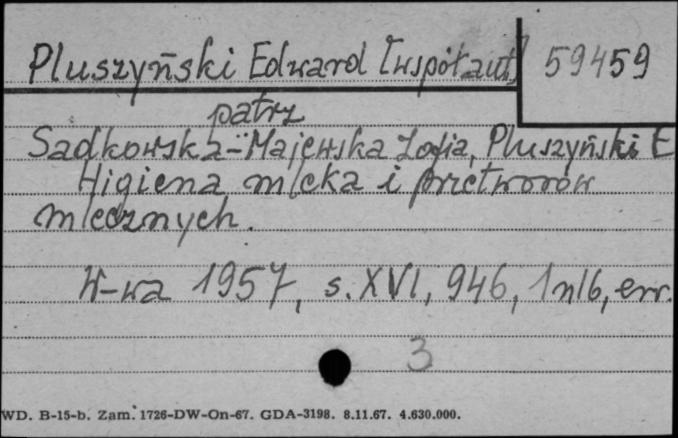 Pluszyński Edward [współaut.] 59459
patrz
Sadkowska-Majewska Zofia, Pluszyński E
Higiena mleka i przetworów
mlecznych.
W-wa 1957, s. XVI, 946, 1 nlb, err.
3
WD. B-15-b. Zam. 1726-DW-On-67. GDA-3198. 8.11.67. 4.630.000.